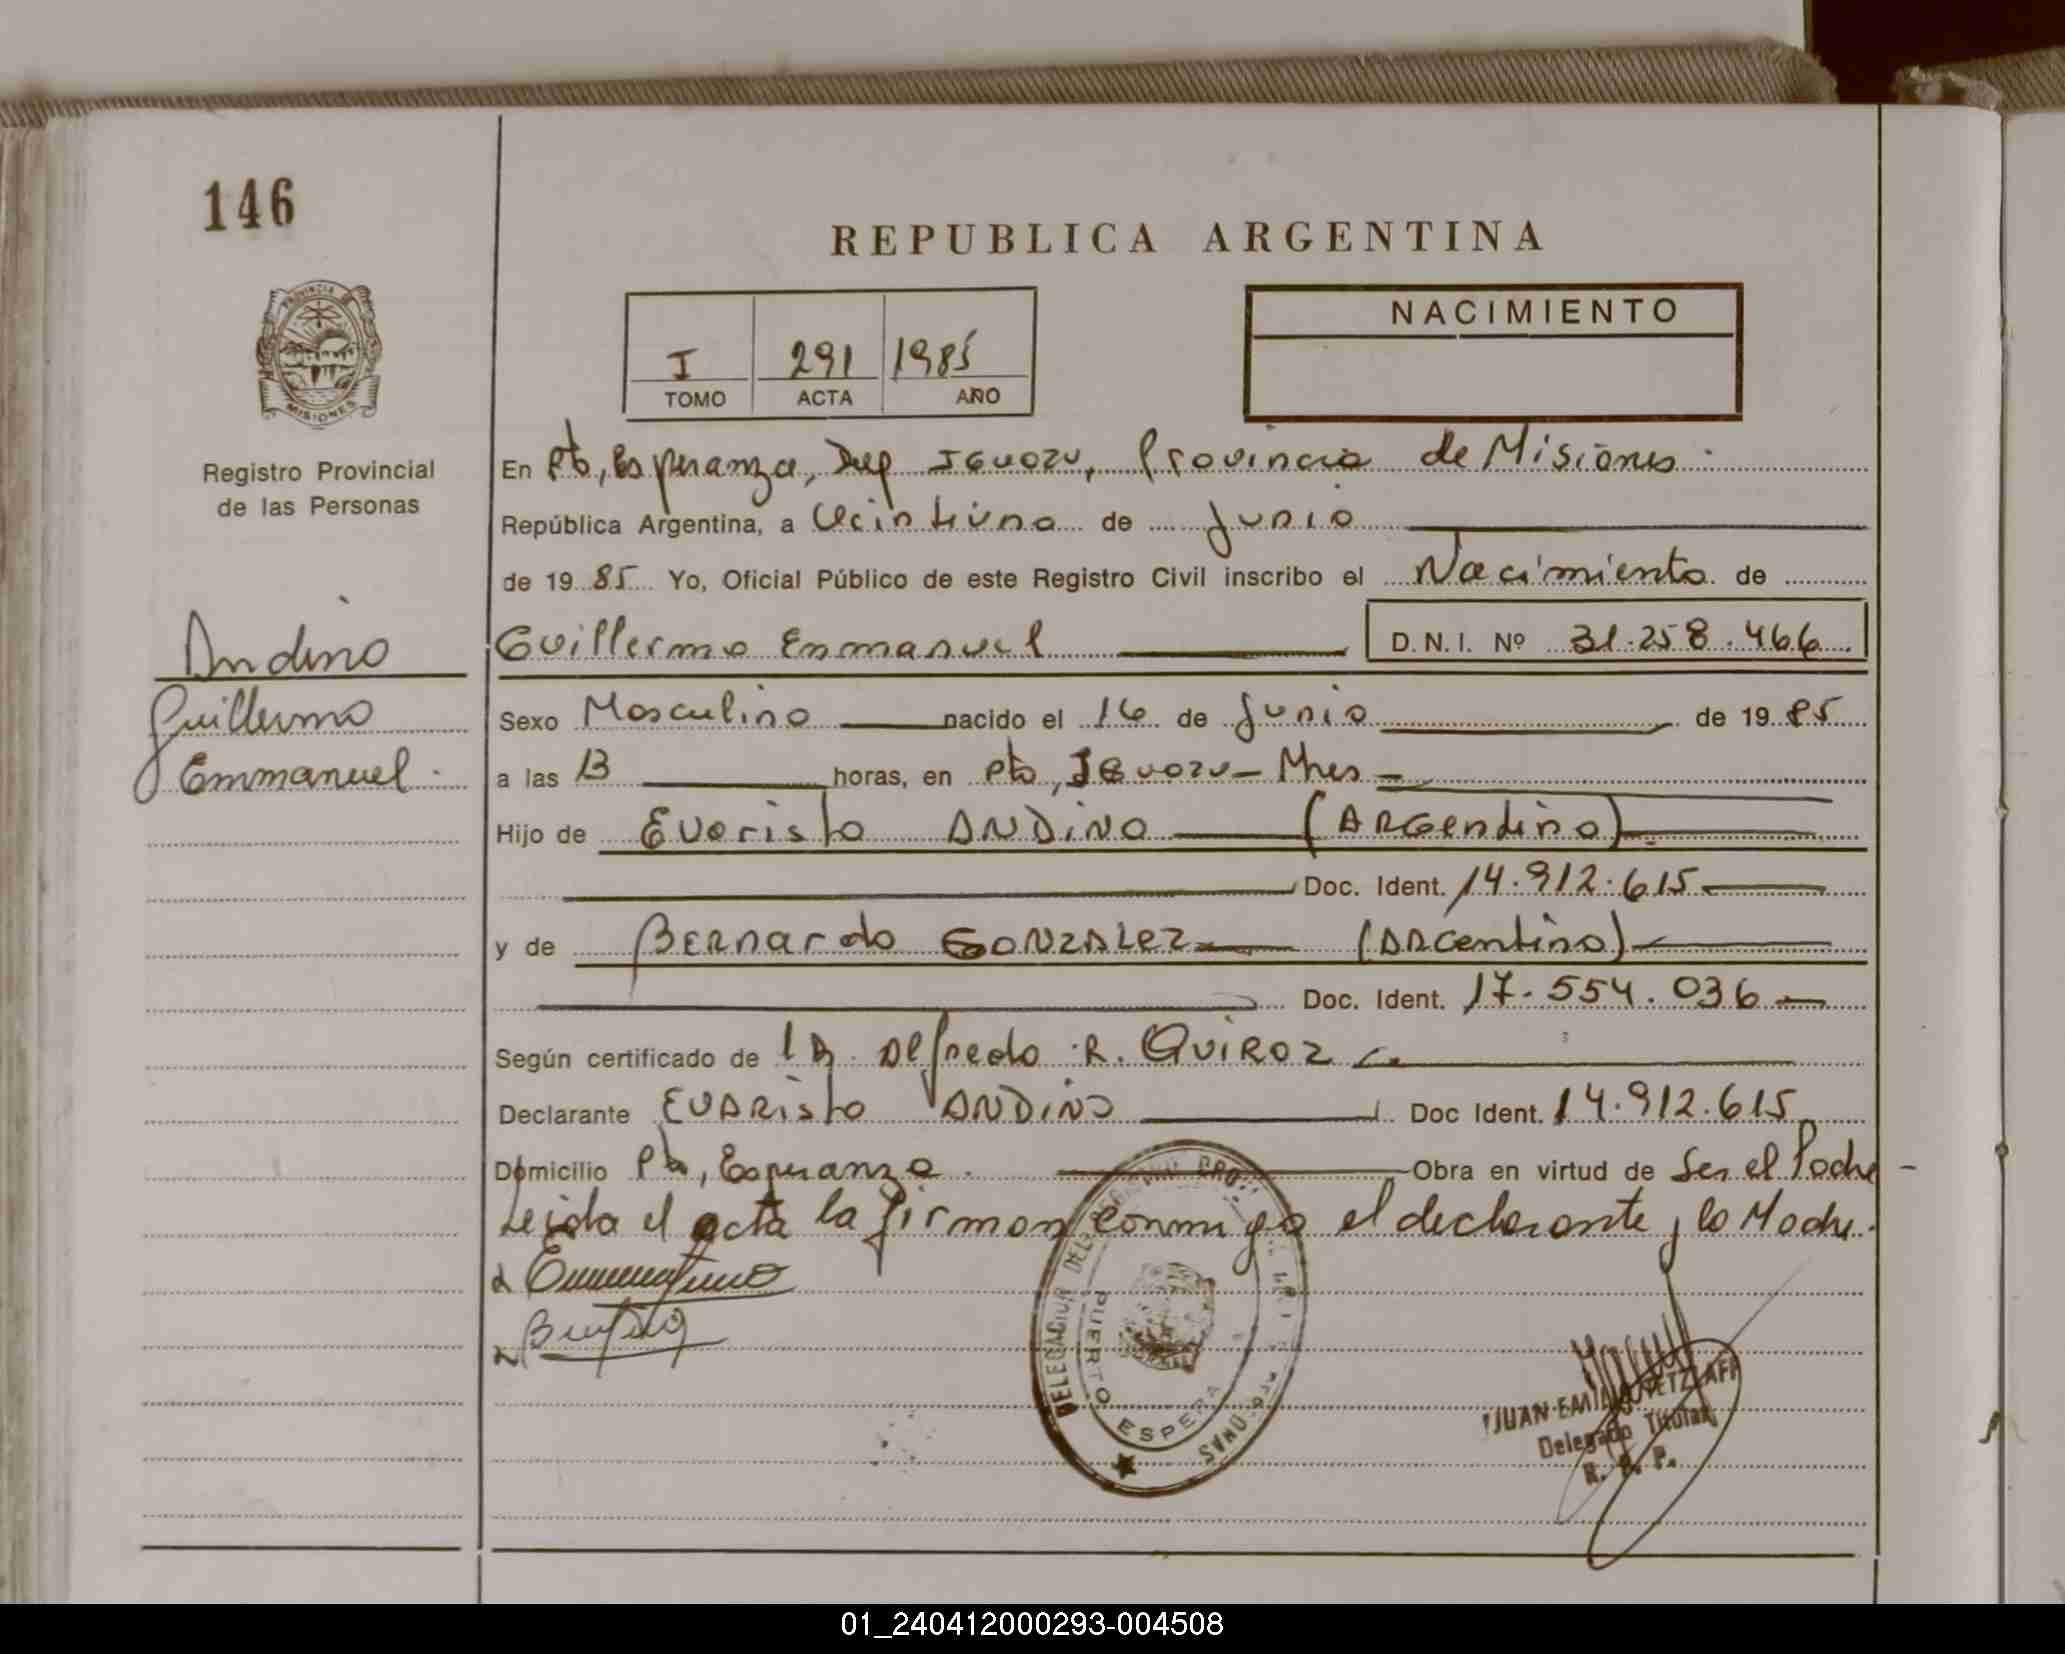 146
REPUBLICA ARGENTINA
PROVINCIA DE
MISIONES
Registro Provincial
de las Personas
I 291 1985
TOMO ACTA AÑO
NACIMIENTO
En Pto, Esperanza, Dep IGUOZU, Provincia de Misiones.
República Argentina, a Veintiuno de Junio
de 1985 Yo, Oficial Público de este Registro Civil inscribo el Nacimiento de
Andino
Guillermo
Emmanuel.
Guillermo Enmanuel D.N.I. Nº 31.258.466
Sexo Masculino nacido el 16 de Junio de 1985
a las 13 horas, en Pto, IGUOZU - Mnes -
Hijo de Evaristo ANDINO (ARGentino)
Doc. Ident. 14.912.615
y de BERnarda GONZALEZ (ARGentina)
Doc. Ident. 17.554.036
Según certificado de Alfredo R. QUIROZ
Declarante EVARisto ANDINO Doc Ident. 14.912.615
Domicilio Pto, Esperanza. Obra en virtud de Ser el Padre
Leida el acta la firman conmigo el declarante y la Madre.
DELEGACION DEL REGISTRO PERSONAS
PUERTO ESPERA
JUAN EMILIO
Delegado Titular
R. P. P.
01_240412000293-004508